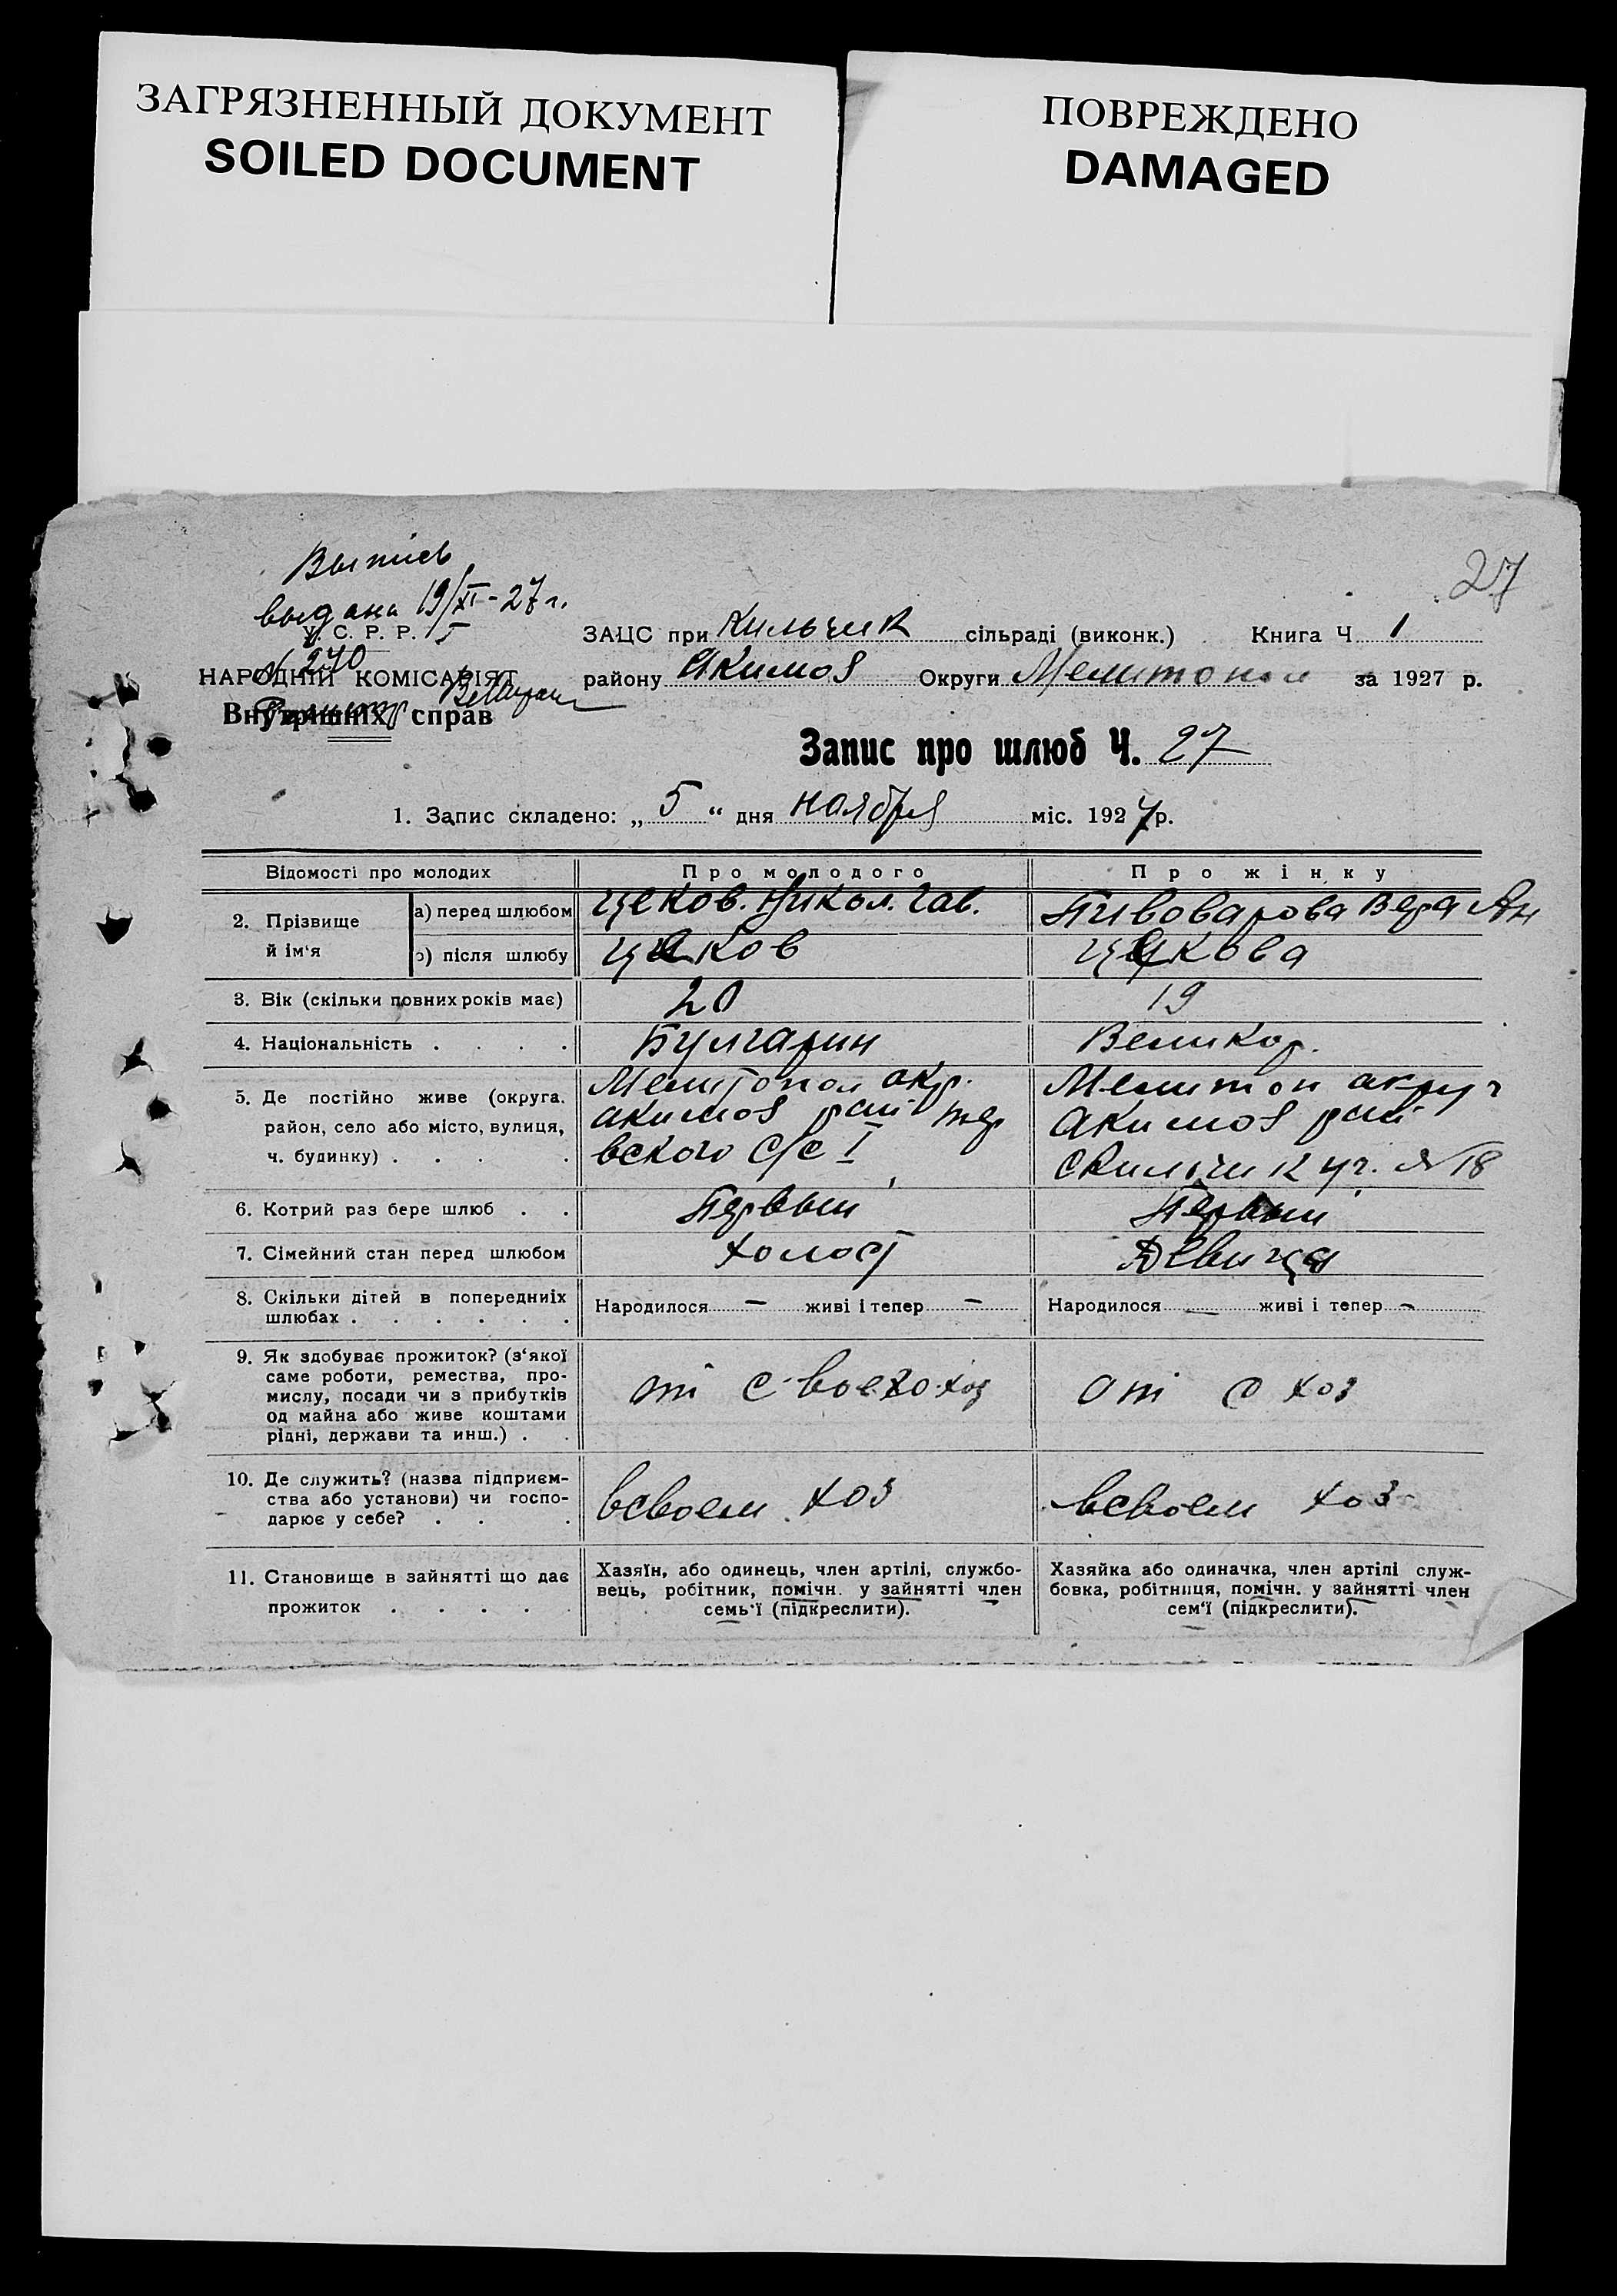 ЗАГРЯЗНЕННЫЙ ДОКУМЕНТ
SOILED DOCUMENT
ПОВРЕЖДЕНО
DAMAGED
27
Выпись
выдана 19/XI-27г.
У. С. Р. Р.
N 270
НАРОДНІЙ КОМІСАРІЯТ
Внутрішніх справ
ЗАЦС при Кильчик сільраді (виконк.) Книга Ч 1
району Якимов Округи Мелитопол за 1927 р.
Запис про шлюб Ч. 27
1. Запис складено: „ 5 “ дня ноября міс. 1927 р.
Відомості про молодих
Про молодого
Про жінку
2. Прізвище й ім‘я
а) перед шлюбом
Цеков. Никол. Гав.
Пивоварова Вера Ан
б) після шлюбу
Цеков
Цекова
3. Вік (скільки повних років має)
20
19
4. Національність . . . .
Булгарин
Великор.
5. Де постійно живе (округа,
район, село або місто, вулиця,
ч. будинку) . . . .
Мелитопол окр.
акимов рай
вского с/с I
Мелитоп округ
акимов рай
уг. N 18
6. Котрий раз бере шлюб . .
Первый
Первый
7. Сімейний стан перед шлюбом
холост
Девица
8. Скільки дітей в попередніх
шлюбах . . . . . .
Народилося — живі і тепер —
Народилося — живі і тепер —
9. Як здобуває прожиток? (з‘якої
саме роботи, ремества, про-
мислу, посади чи з прибутків
од майна або живе коштами
рідні, держави та инш.) . .
от своего хоз
от с хоз
10. Де служить? (назва підприєм-
ства або установи) чи госпо-
дарює у себе? . . .
всвоем хоз
всвоем хоз
11. Становище в зайнятті що дає
прожиток . . . . .
Хазяїн, або одинець, член артілі, службо-
вець, робітник, помічн. у зайнятті член
семь‘ї (підкреслити).
Хазяйка або одиначка, член артілі служ-
бовка, робітниця, помічн. у зайнятті член
сем‘ї (підкреслити).